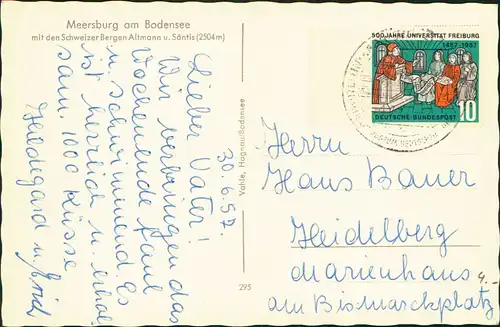 Meersburg am Bodensee
mit den Schweizer Bergen Altmann u. Säntis (2504 m)
30.6.57.
Lieber Vater!
Wir verbringen das
Wochenende faul
u. schwimmend. Es
ist herrlich u. erhol
sam. 1000 Küsse
Heidegard u. Erich
Vahle, Hagnau/Bodensee
295
500 JAHRE UNIVERSITÄT FREIBURG
1457-1957
DEUTSCHE BUNDESPOST
10
Herrn
Hans Bauer
Heidelberg
Marienhaus
am Bismarckplatz
4.-